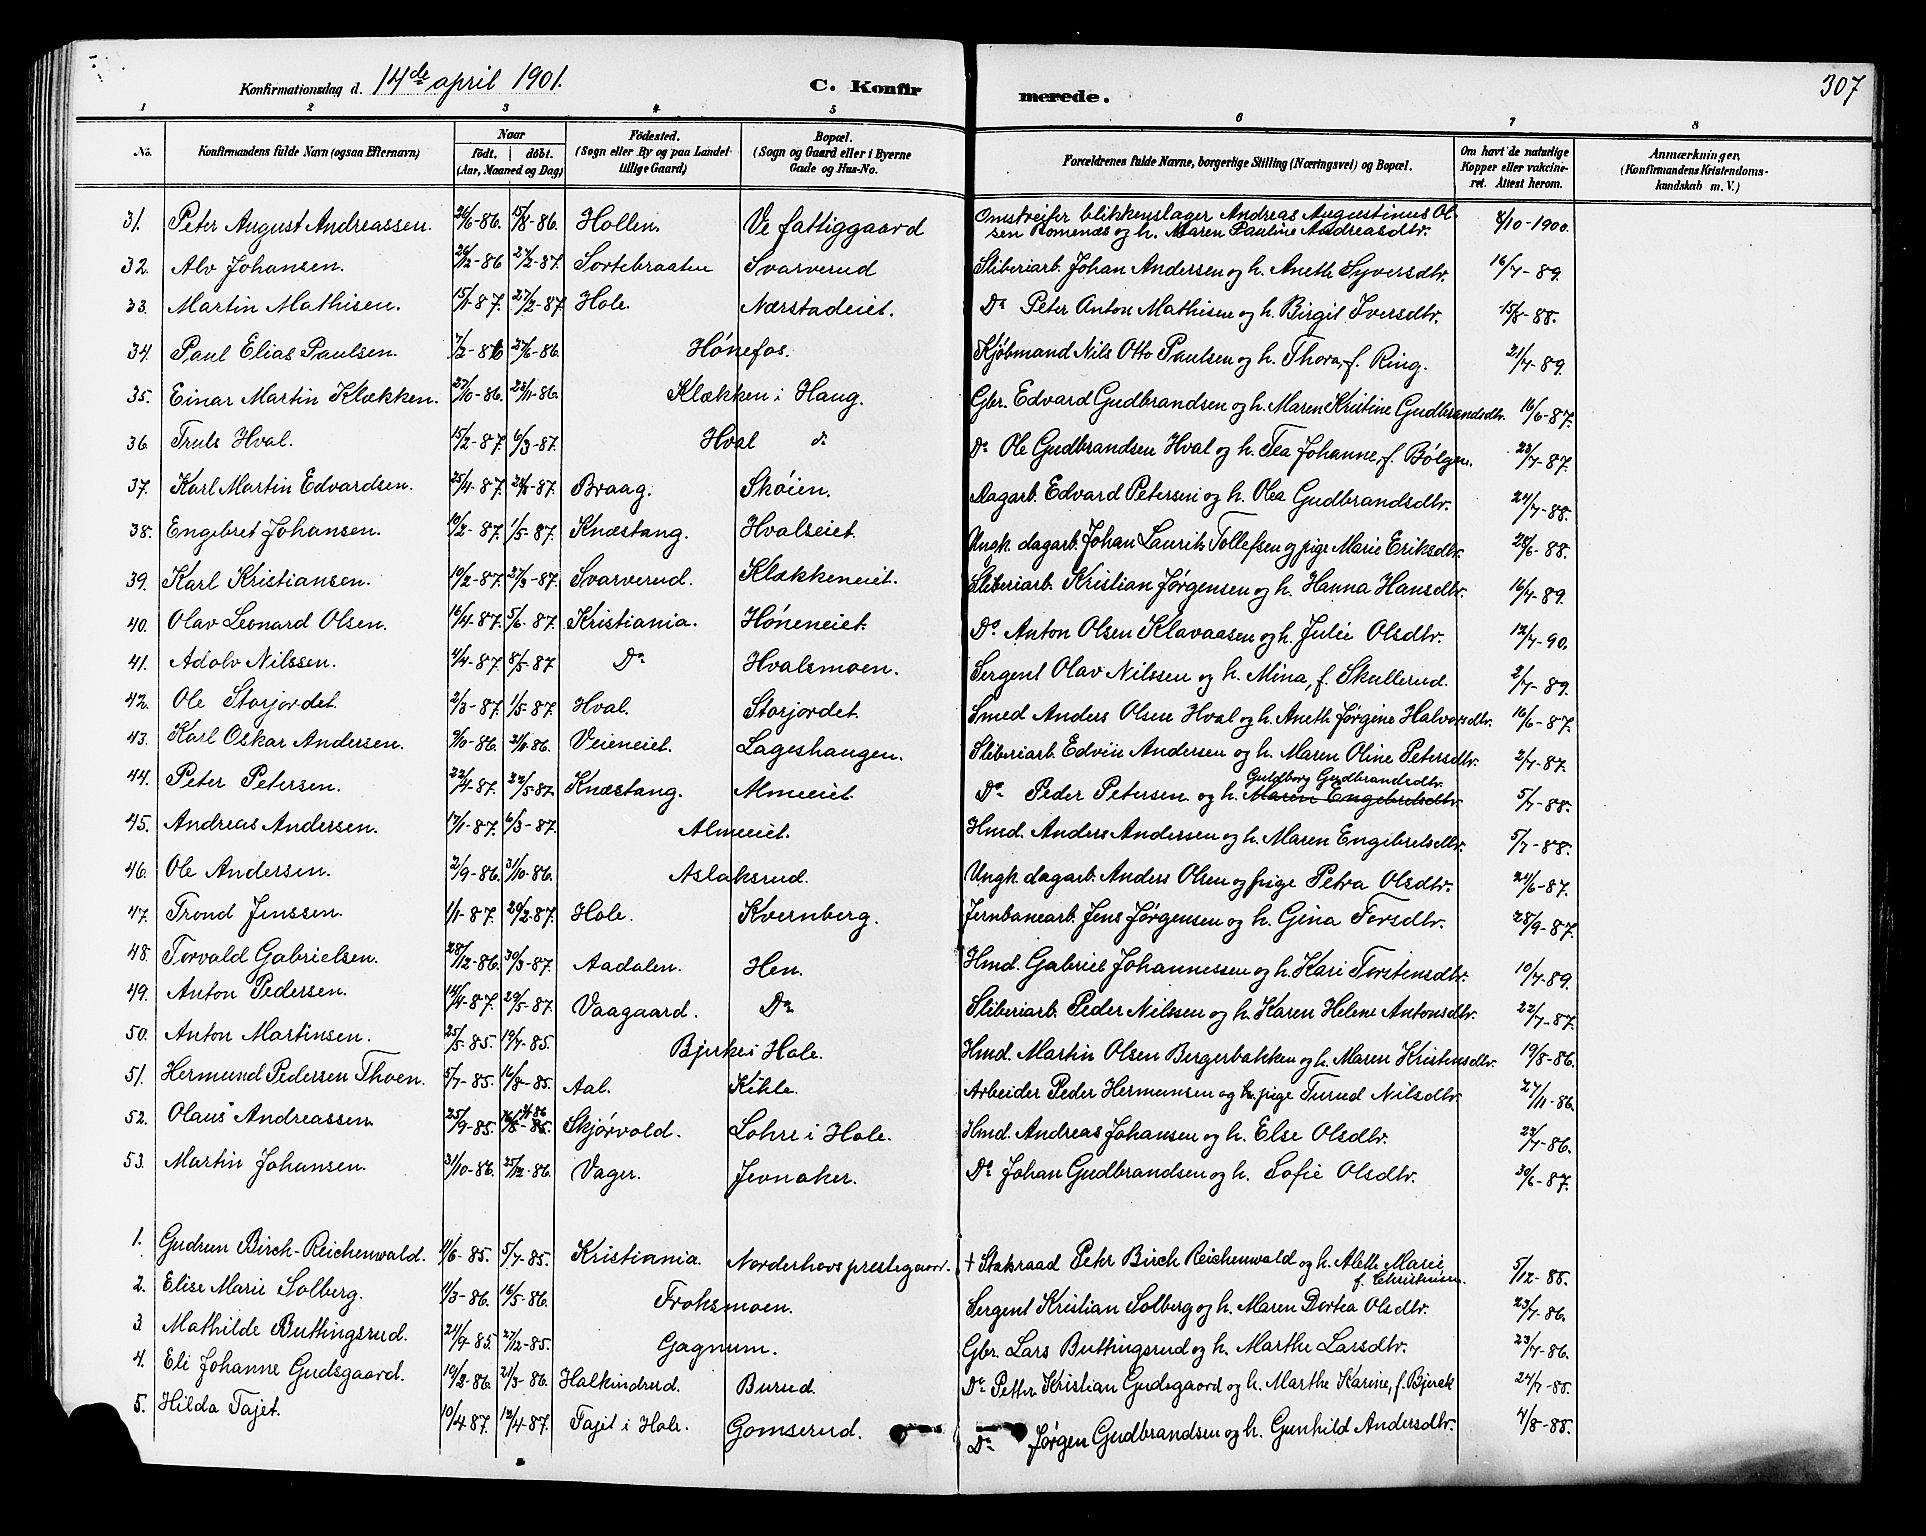 Konfirmationsdag d. 14de april 1901.
C. Konfirmerede.
307
1 2 3 4 5 6 7 8
No. Konfirmandens fulde Navn (ogsaa Efternavn) Naar födt. döbt. (Aar, Maaned og Dag) Födested. (Sogn eller By og paa Landet tillige Gaard) Bopæl. (Sogn og Gaard eller i Byerne Gade og Hus-No. Forældrenes fulde Navne, borgerlige Stilling (Næringsvei) og Bopæl. Om havt de naturlige Kopper eller vakcineret. Attest herom. Anmærkninger. (Konfirmandens Kristendomskundskab m. V.)
31. Peter August Andreassen. 26/6-86. 15/8-86. Hollen. Ve fattiggaard Omstreifer blikkenslager Andreas Augustinus Olsen Romenæs og h. Maren Pauline Andreasdtr. 8/10-1900.
32. Alv Johansen. 26/12-86 27/2-87. Sortebraaten Svarverud Sliberiarb. Johan Andersen og h. Aneth Syversdtr. 16/7-89.
33. Martin Mathisen. 15/1-87. 27/2-87. Hole. Nærstadeiet. Do Peter Anton Mathisen og h. Birgit Iversdtr. 15/8-88.
34. Paul Elias Paulsen. 7/2-86 27/6-86. Hönefos. Kjöbmand Nils Otto Paulsen og h. Thora, f. Ring. 21/7-89.
35. Einar Martin Klækken. 27/10-86. 28/11-86. Klækken i Haug. Gbr. Edvard Gudbrandsen og h. Maren Kristine Gudbrandsdtr. 16/6-87.
36. Truls Hval. 15/2-87. 6/3-87. Hval do Do Ole Gudbrandsen Hval og h. Tea Johanne, f. Bölgen. 23/7-87.
37. Karl Martin Edvardsen. 25/4-87. -87. Braag. Skøien. Dagarb. Edvard Petersen og h. Olea Gudbrandsdtr. 24/7-88.
38. Engebret Johansen. 19/2-87. 1/5-87. Knæstang. Hvalseiet. Ungk. dagarb. Johan Laurits Tollefsen og pige Marie Eriksdtr. 28/6-88.
39. Karl Kristiansen. 10/2-87. 27/3-87. Svarverud. Klækkeneiet. Sliberiarb. Kristian Jørgensen og h. Hanna Hansdtr. 16/7-89.
40. Olav Leonard Olsen. 16/4-87. 5/6-87. Kristiania. Höneneiet. Do. Anton Olsen Klavaasen og h. Julie Olsdtr. 12/7-90.
41. Adolv Nilssen. 4/4-87. 8/5-87 Do Hvalsmoen. Sergent Olav Nilssen og h. Mina, f. Skullerud. 2/7-89.
42. Ole Storjordet. 2/3-87. 1/5-87. Hval. Storjordet. Smed Anders Olsen Hval og h. Aneth Jørgine Halvorsdtr. 16/6-87.
43. Karl Oskar Andersen. 9/10-86. 21/11-86. Veieneiet. Lageshaugen. Sliberiarb. Edvin Andersen og h. Maren Oline Petersdtr. 2/7-87.
44. Peter Petersen. 22/4-87. 22/5-87. Knæstang. Almeeiet. Do Peder Petersen og h. Guldborg Gudbrandsdtr. Maren Engebretsdtr. 5/7-88.
45. Andreas Andersen. 17/1-87. 6/3-87. Almeeiet. Hmd. Anders Andersen og h. Maren Engebretsdtr. 5/7-88.
46. Ole Andersen. 2/9-86. 31/10-86. Aslaksrud. Ungk. dagarb. Anders Olsen og pige Petra Olsdtr. 24/6-87.
47. Trond Jenssen. 1/1-87. 20/2-87. Hole. Kvernberg. Jernbanearb. Jens Jørgensen og h. Gina Torsdtr. 28/9-87.
48. Torvald Gabrielsen. 28/12-86. 30/3-87. Aadalen. Hen. Hmd. Gabriel Johannessen og h. Kari Torstensdtr. 10/7-89.
49. Anton Pedersen. 14/4-87. 29/5-87. Vaagaard. Do Sliberiarb. Peder Nilssen og h. Karen Helene Antonsdtr. 22/7-87.
50. Anton Martinsen. 25/5-85. 19/7-85. Bjerke i Hole. Hmd. Martin Olsen Bergerbakken og h. Maren Kristensdtr. 19/8-86.
51. Hermund Pedersen Thoen. 5/7-85. 16/8-85. Aal. Kihle. Arbeider Peder Hermunsen og pige Turud Nilsdtr. 27/11-86.
52. Olaus Andreassen. 25/9-85. Skjørvold. Lohre i Hole. Hmd. Andreas Johansen og h. Else Olsdtr. 23/7-86.
53. Martin Johansen. 31/10-86. 25/12-86. Vager. Jevnaker. Do Johan Gudbrandsen og h. Sofie Olsdtr. 30/6-87.
1. Gudrun Birch-Reichenwald. 11/6-85. 5/7-85. Kristiania. Norderhovs prestegaard. † Statsraad Peter Birch Reichenwald og h. Alette Marie f. Christensen. 5/12-88.
2. Elise Marie Solberg. 11/3-86. 16/5-86. Froksmoen. Sergent Kristian Solberg og h. Maren Dortea Olsdtr. 23/7-86.
3. Mathilde Buttingsrud. 24/9-85. 27/12-85. Gagnum. Gbr. Lars Buttingsrud og h. Marthe Larsdtr. 23/7-86.
4. Eli Johanne Gudsgaard. 19/2-86. 21/3-86. Halkindrud. Burud. Do Petter Kristian Gudsgaard og h. Marthe Karine, f. Bjerck 24/7-88.
5. Hilda Tajet. 10/4 87. 12/4-87. Tajet i Hole. Gomserud. Do Jørgen Gudbrandsen og h. Gunhild Andersdtr. 4/8-88.